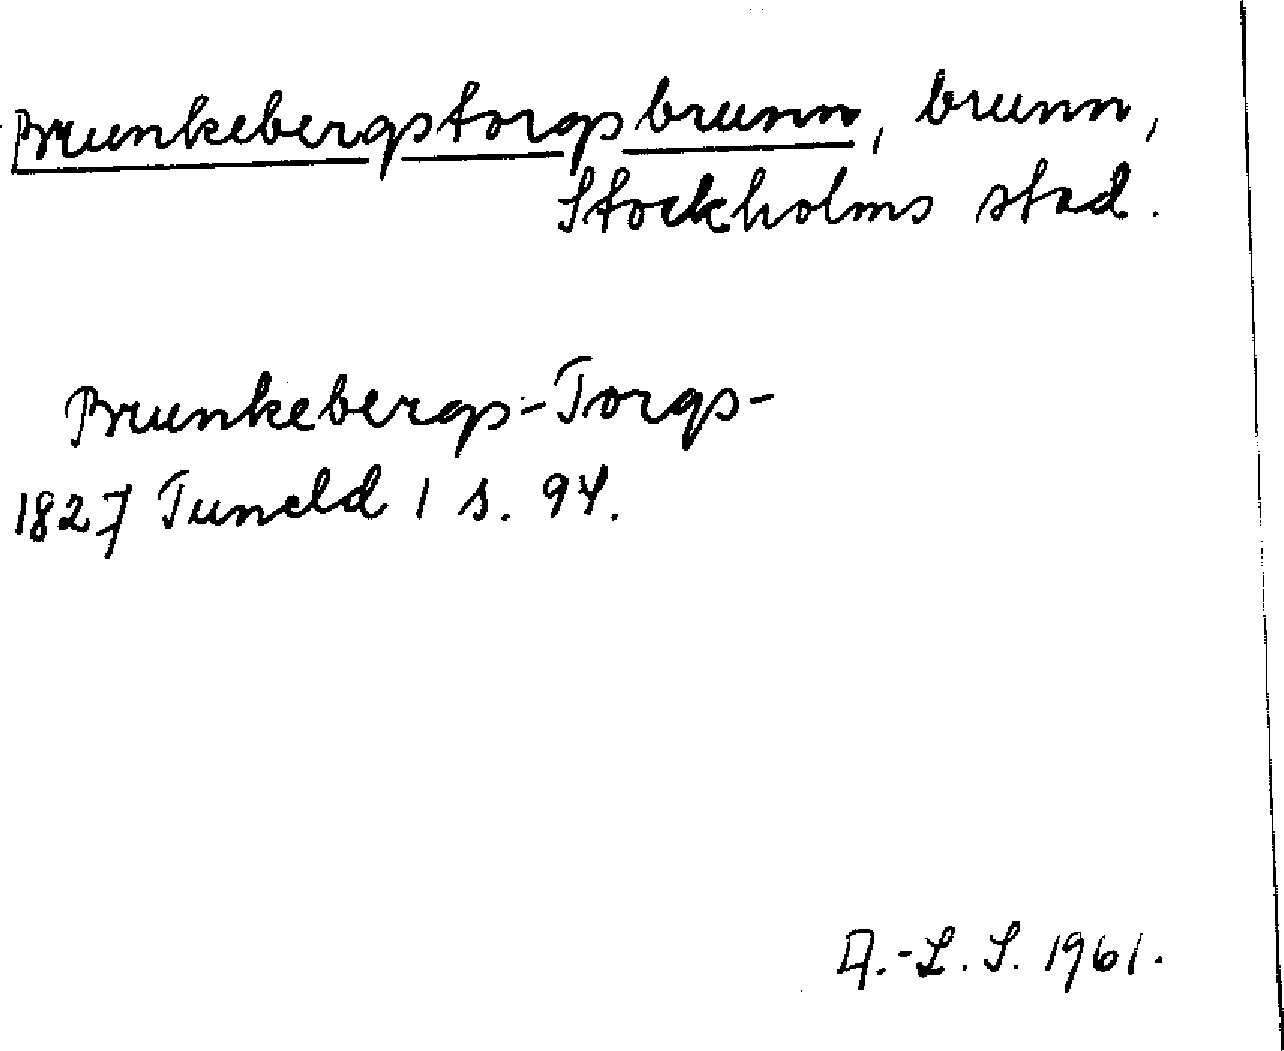 Brunkebergstorgsbrunn, brunn,
Stockholms stad.
Brunkebergs-Torgs-
1827 Tuneld 1 s. 94.
A.-L. S. 1961.